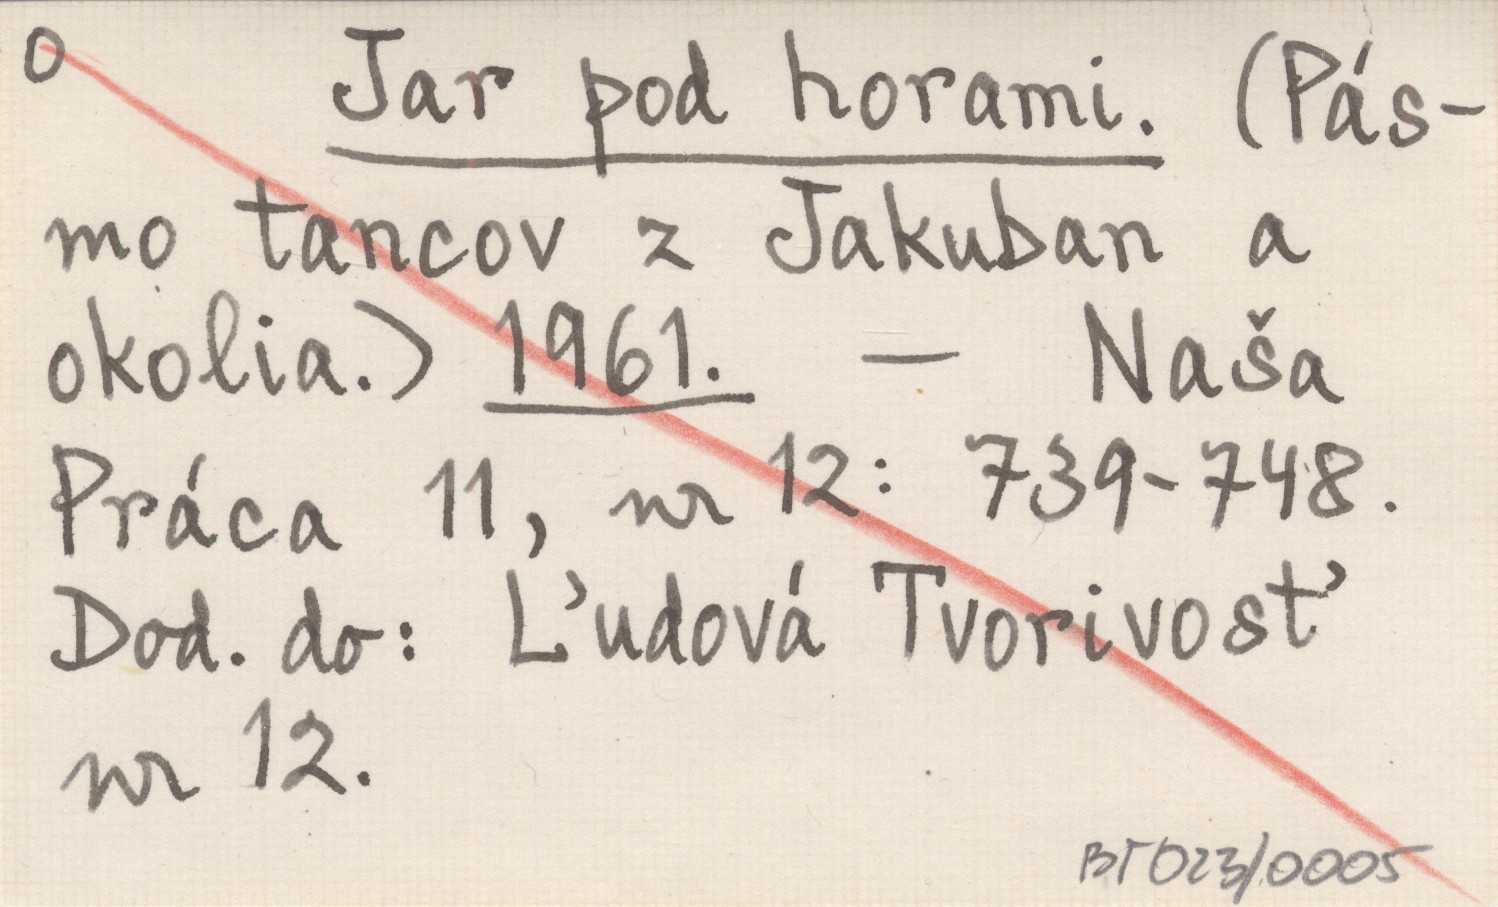 O Jar pod horami. (Pás-
mo tancov z Jakuban a
okolia.) 1961. — Naša
Práca 11, nr 12: 739-748.
Dod. do: Ľudová Tvorivosť
nr 12.
BT023/0005